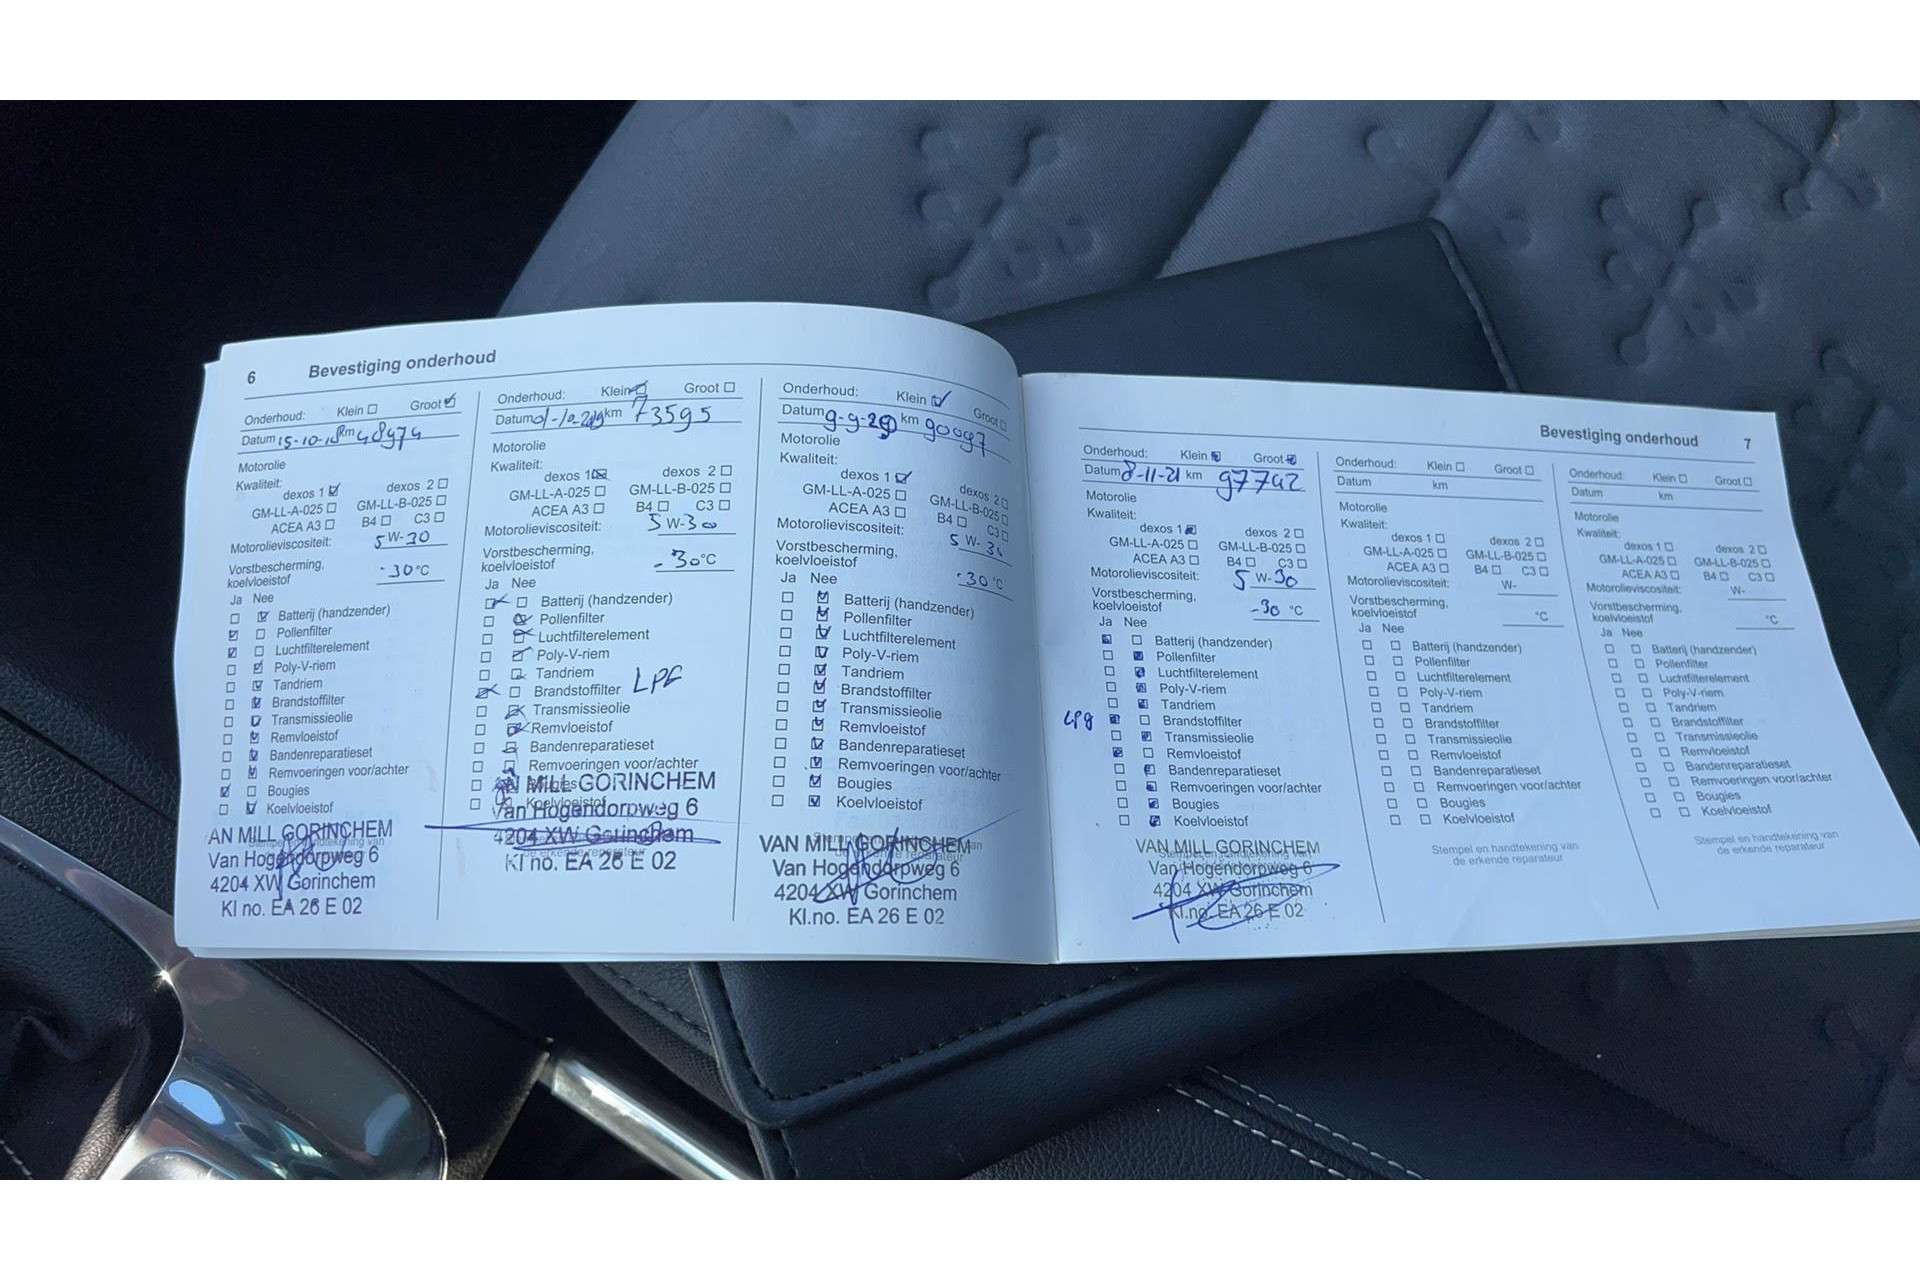 6 Bevestiging onderhoud
Onderhoud: Klein Groot
Datum 15-10-18 km 48974
Motorolie
Kwaliteit:
dexos 1 dexos 2
GM-LL-A-025 GM-LL-B-025
ACEA A3 B4 C3
Motorolieviscositeit: 5 W-30
Vorstbescherming,
koelvloeistof -30 °C
Ja Nee
Batterij (handzender)
Pollenfilter
Luchtfilterelement
Poly-V-riem
Tandriem
Brandstoffilter
Transmissieolie
Remvloeistof
Bandenreparatieset
Remvoeringen voor/achter
Bougies
Koelvloeistof
AN MILL GORINCHEM
Van Hogendorpweg 6
4204 XW Gorinchem
Kl no. EA 26 E 02
Onderhoud: Klein Groot
Datum 01-10-2019 km 73595
Motorolie
Kwaliteit:
dexos 1 dexos 2
GM-LL-A-025 GM-LL-B-025
ACEA A3 B4 C3
Motorolieviscositeit: 5 W-30
Vorstbescherming,
koelvloeistof -30 °C
Ja Nee
Batterij (handzender)
Pollenfilter
Luchtfilterelement
Poly-V-riem
Tandriem
Brandstoffilter LPG
Transmissieolie
Remvloeistof
Bandenreparatieset
Remvoeringen voor/achter
Bougies
Koelvloeistof
AN MILL GORINCHEM
Van Hogendorpweg 6
4204 XW Gorinchem
de erkende reparateur
Kl no. EA 26 E 02
Onderhoud: Klein Groot
Datum 9-9-20 km 90097
Motorolie
Kwaliteit:
dexos 1 dexos 2
GM-LL-A-025 GM-LL-B-025
ACEA A3 B4 C3
Motorolieviscositeit: 5 W-30
Vorstbescherming,
koelvloeistof -30 °C
Ja Nee
Batterij (handzender)
Pollenfilter
Luchtfilterelement
Poly-V-riem
Tandriem
Brandstoffilter
Transmissieolie
Remvloeistof
Bandenreparatieset
Remvoeringen voor/achter
Bougies
Koelvloeistof
VAN MILL GORINCHEM
Van Hogendorpweg 6
4204 XW Gorinchem
Kl.no. EA 26 E 02
Bevestiging onderhoud 7
Onderhoud: Klein Groot
Datum 8-11-21 km 97742
Motorolie
Kwaliteit:
dexos 1 dexos 2
GM-LL-A-025 GM-LL-B-025
ACEA A3 B4 C3
Motorolieviscositeit: 5 W-30
Vorstbescherming,
koelvloeistof -30 °C
Ja Nee
Batterij (handzender)
Pollenfilter
Luchtfilterelement
Poly-V-riem
Tandriem
LPG Brandstoffilter
Transmissieolie
Remvloeistof
Bandenreparatieset
Remvoeringen voor/achter
Bougies
Koelvloeistof
VAN MILL GORINCHEM
Van Hogendorpweg 6
4204 XW Gorinchem
Kl.no. EA 26 E 02
Onderhoud: Klein Groot
Datum km
Motorolie
Kwaliteit:
dexos 1 dexos 2
GM-LL-A-025 GM-LL-B-025
ACEA A3 B4 C3
Motorolieviscositeit: W-
Vorstbescherming,
koelvloeistof °C
Ja Nee
Batterij (handzender)
Pollenfilter
Luchtfilterelement
Poly-V-riem
Tandriem
Brandstoffilter
Transmissieolie
Remvloeistof
Bandenreparatieset
Remvoeringen voor/achter
Bougies
Koelvloeistof
Stempel en handtekening van
de erkende reparateur
Onderhoud: Klein Groot
Datum km
Motorolie
Kwaliteit:
dexos 1 dexos 2
GM-LL-A-025 GM-LL-B-025
ACEA A3 B4 C3
Motorolieviscositeit: W-
Vorstbescherming,
koelvloeistof °C
Ja Nee
Batterij (handzender)
Pollenfilter
Luchtfilterelement
Poly-V-riem
Tandriem
Brandstoffilter
Transmissieolie
Remvloeistof
Bandenreparatieset
Remvoeringen voor/achter
Bougies
Koelvloeistof
Stempel en handtekening van
de erkende reparateur